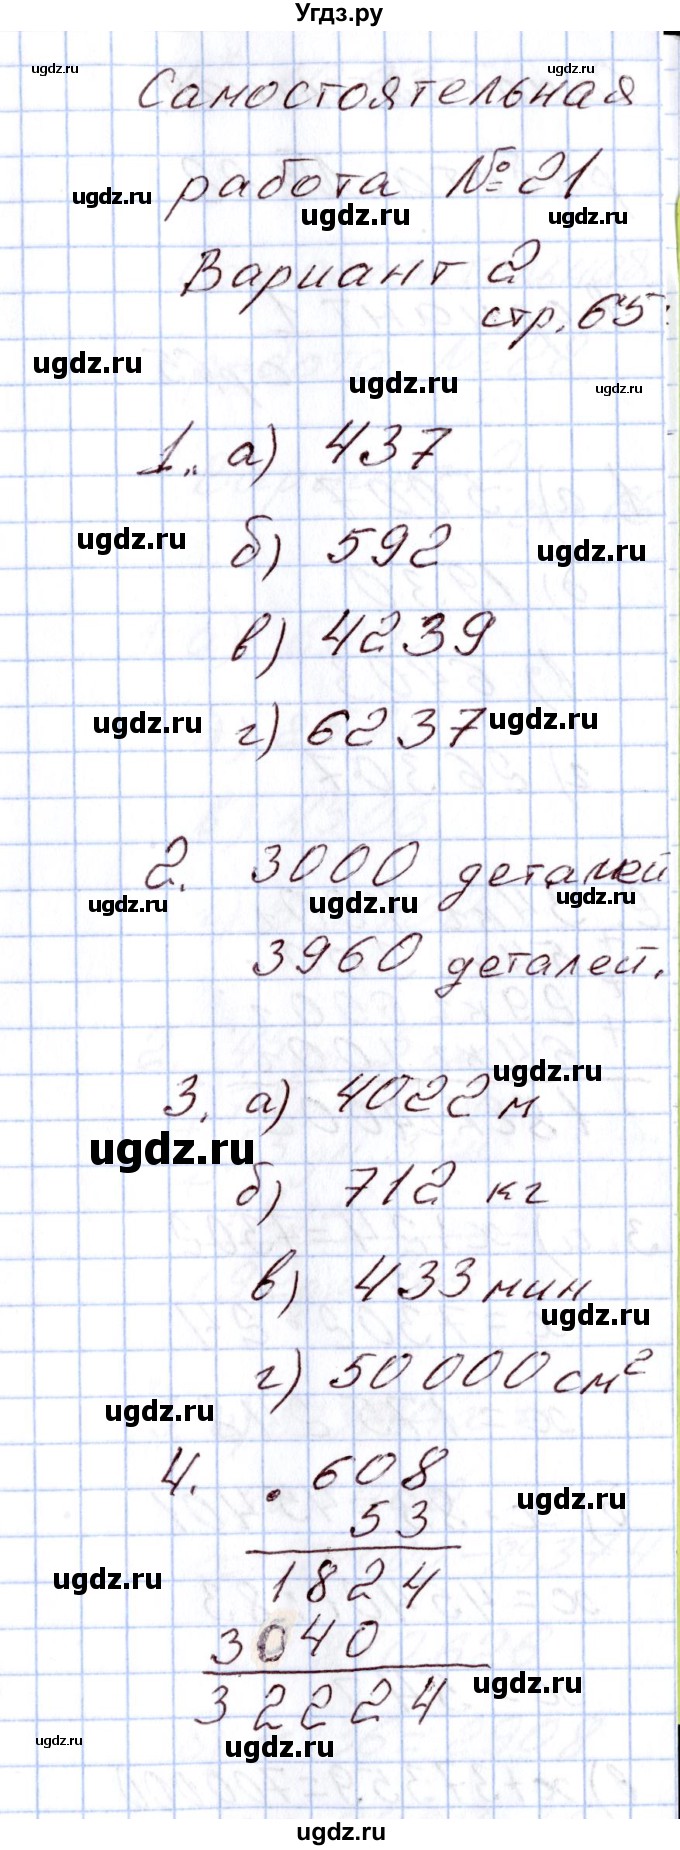 Угдз.ру
ugdz.ru ugdz.ru
Самостоятельная
ugdz.ru
работа №21
ugdz.ru ugdz.ru
Вариант 2
стр. 65:
ugdz.ru
ugdz.ru ugdz.ru
1. а) 437
ugdz.ru
б) 592
ugdz.ru
в) 4239
ugdz.ru
г) 6237
ugdz.ru
2. 3000 деталей
ugdz.ru ugdz.ru ugdz.ru
3960 деталей.
ugdz.ru
3. а) 4022 м
ugdz.ru
б) 712 кг
в) 433 мин
ugdz.ru
г) 50000 см²
ugdz.ru
4. . 608
ugdz.ru
53
ugdz.ru
1824
3040
ugdz.ru
32224
ugdz.ru ugdz.ru
ugdz.ru